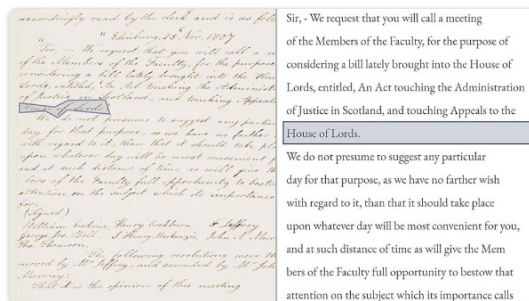 accordingly read by the clerk and is as foll
" Edinburg, 28th Nov. 1807
"Sir, — We request that you will call a m
of the Members of the Faculty, for the purpose
considering a bill lately brought into the Hou
Lords, entitled, "An Act touching the Administ
of Justice in Scotland, and touching Appeals
House of Lords.
We do not presume to suggest any partic
day for that purpose, as we have no farther
with regard to it, than that it should take pl
upon whatever day will be most convenient f
and at such distance of time as will give th
bers of the Faculty full opportunity to besto
attention on the subject which its importance
for.
(Signed)
William Erskine, Henry Cockburn, F Jeffrey
George Jos. Bell, J Henry Mackenzie, John A Mur
Tho Thomson.
The following resolutions were th
moved by Mr Jeffrey, and seconded by Mr John
Murray:
That it is the opinion of this meeting
Sir, - We request that you will call a meeting
of the Members of the Faculty, for the purpose of
considering a bill lately brought into the House of
Lords, entitled, An Act touching the Administration
of Justice in Scotland, and touching Appeals to the
House of Lords.
We do not presume to suggest any particular
day for that purpose, as we have no farther wish
with regard to it, than that it should take place
upon whatever day will be most convenient for you,
and at such distance of time as will give the Mem
bers of the Faculty full opportunity to bestow that
attention on the subject which its importance calls